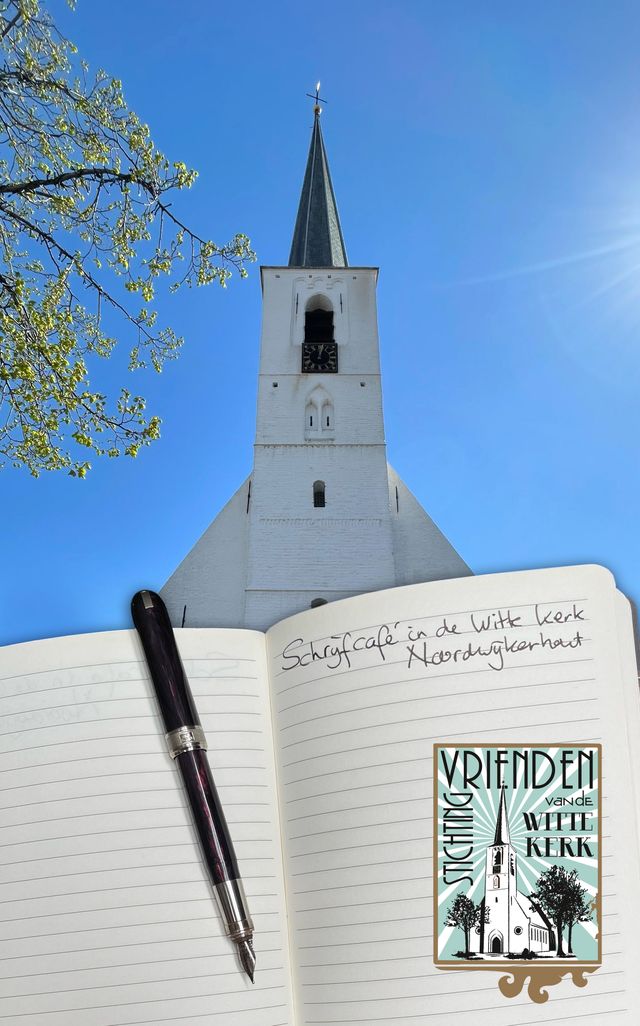 Schrijfcafé in de Witte Kerk
Noordwijkerhout
STICHTING
VRIENDEN
VAN DE
WITTE
KERK